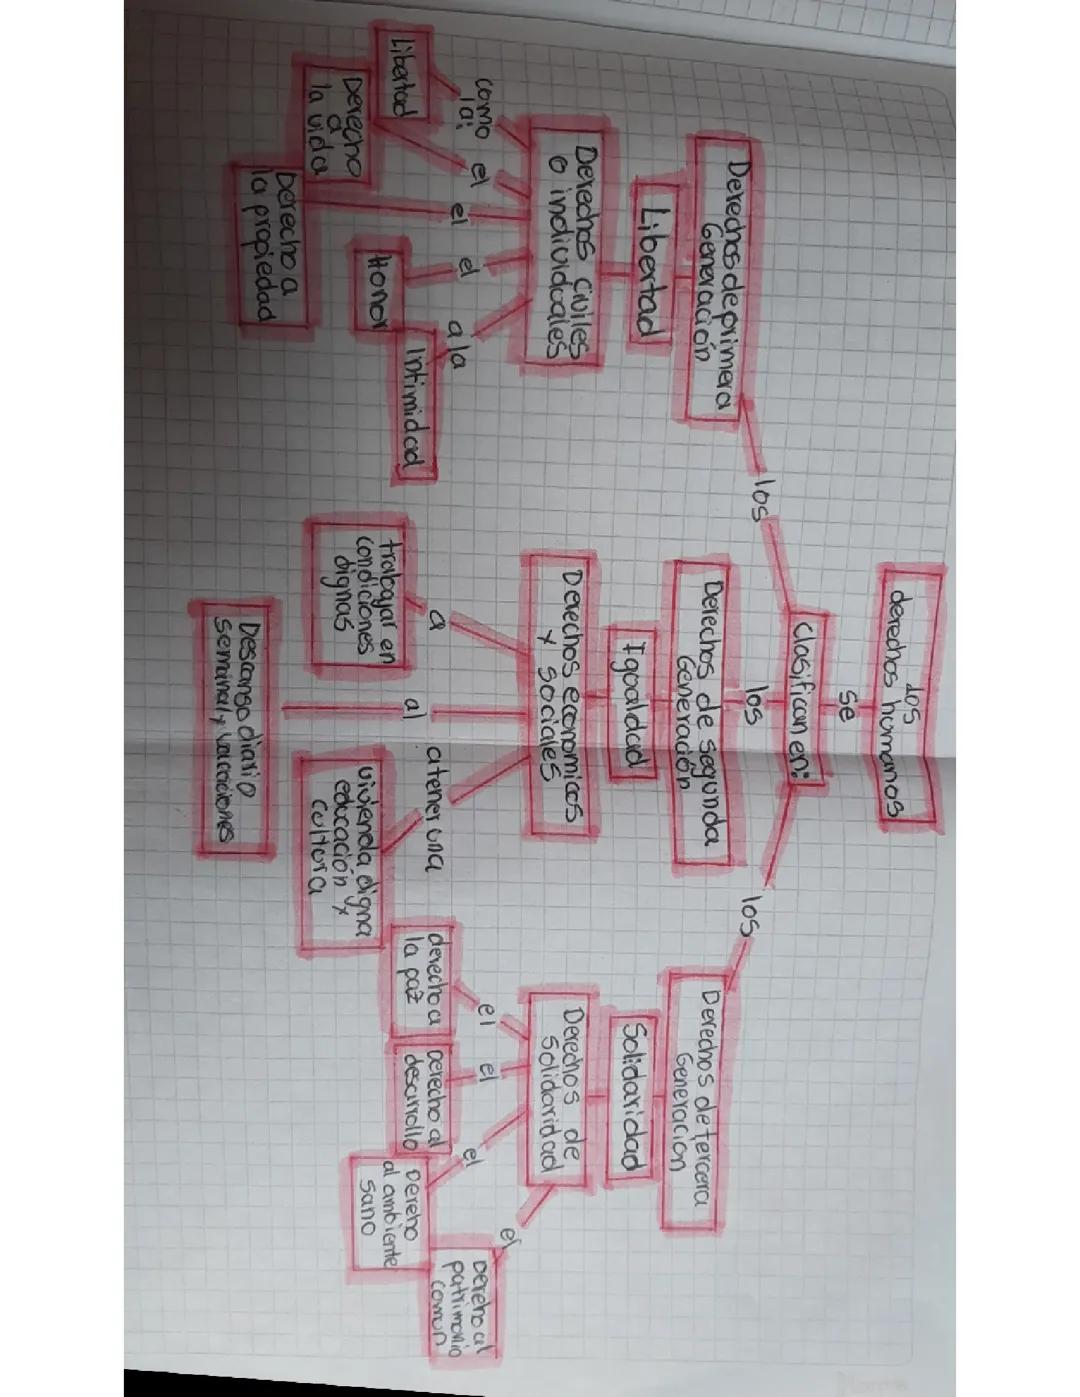 Los
derechos humanos
se
Clasifican en:
los
los
los
Derechos de primera
Generación
Libertad
Derechos civiles
o individuales
como
la:
el
el
el
a la
Libertad
Derecho
a
la vida
Derecho a
la propiedad
Honor
Intimidad
Derechos de segunda
Generación
Igualdad
Derechos economicos
y sociales
a
al
a tener una
trabajar en
condiciones
dignas
Descanso diario
semanal y vacaciones
vivienda digna
educación y
cultura
Derechos de tercera
Generacion
Solidaridad
Derechos de
solidaridad
el
el
el
el
derecho a
la paz
Derecho al
desarrollo
Dereho
al ambiente
sano
Dereho al
patrimonio
comun